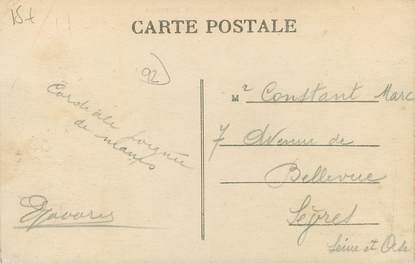 15+
CARTE POSTALE
92
Cordiale poignée
de mains
Mr Constant Marc
7 Avenue de
Bellevue
Sèvres
Seine et Oise